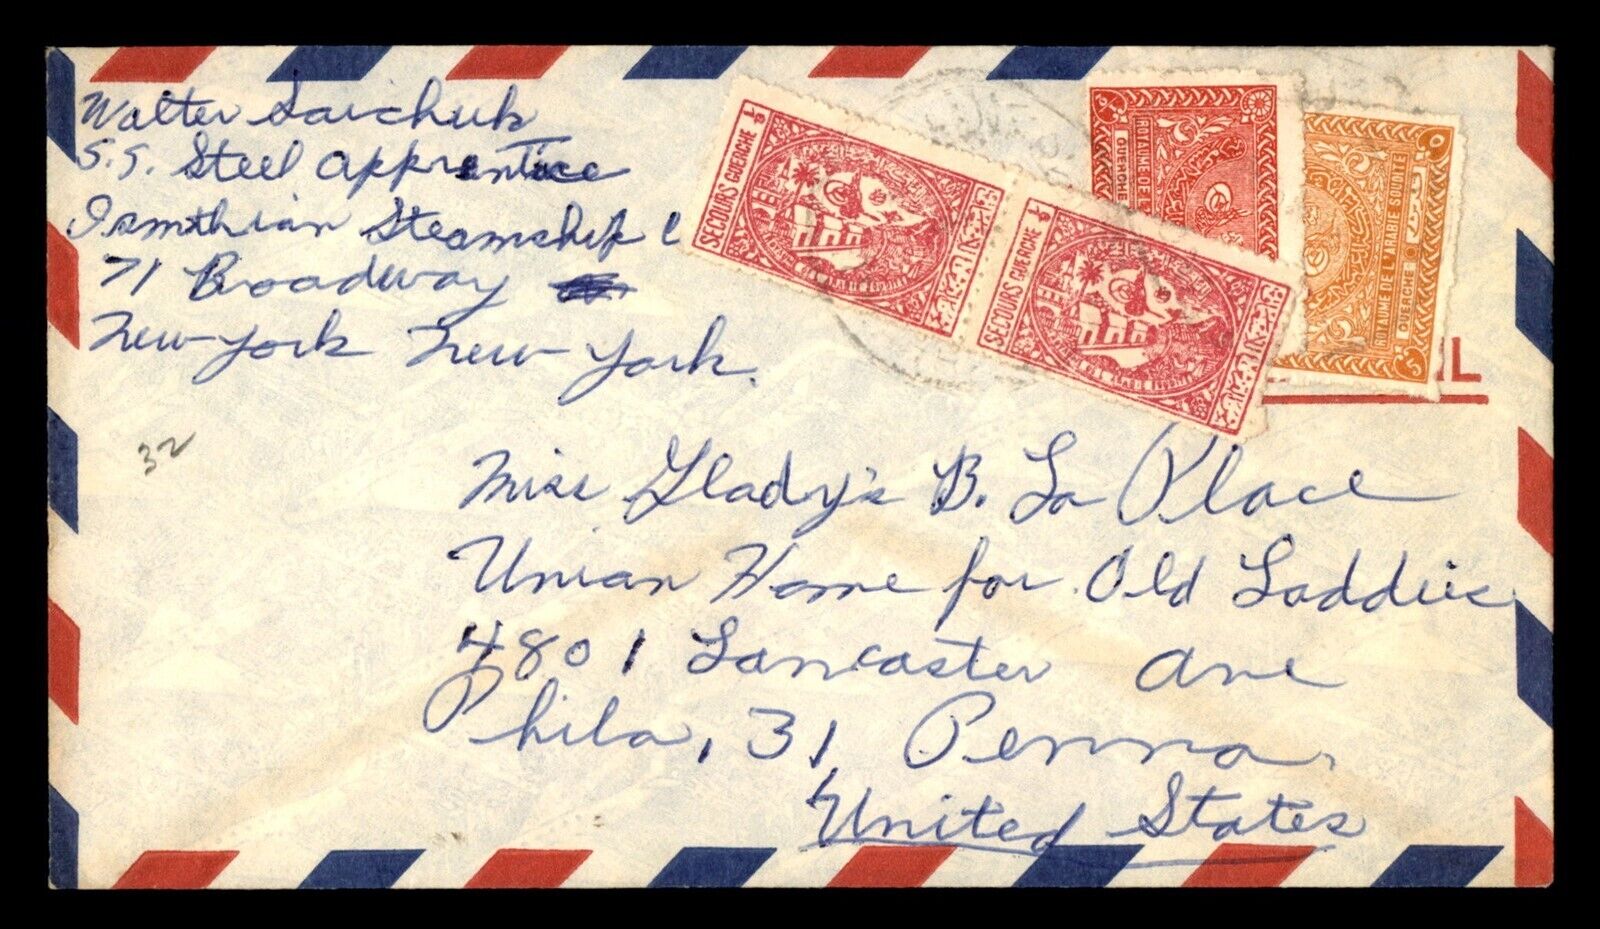 Walter Saichuk
S.S. Steel Apprentice
Ismthian Steamship C
71 Broadway
New York New York.
32
SECOURS GUERCHE 1/8
SECOURS GUERCHE 1/8
ROYAUME DE L
GUERCHE
ROYAUME DE L'ARABIE SOUDITE
GUERCHE
L
Miss Glady's B. La Place
Union Home for Old Laddies
4801 Lancaster Ave
Phila, 31, Penna.
United States